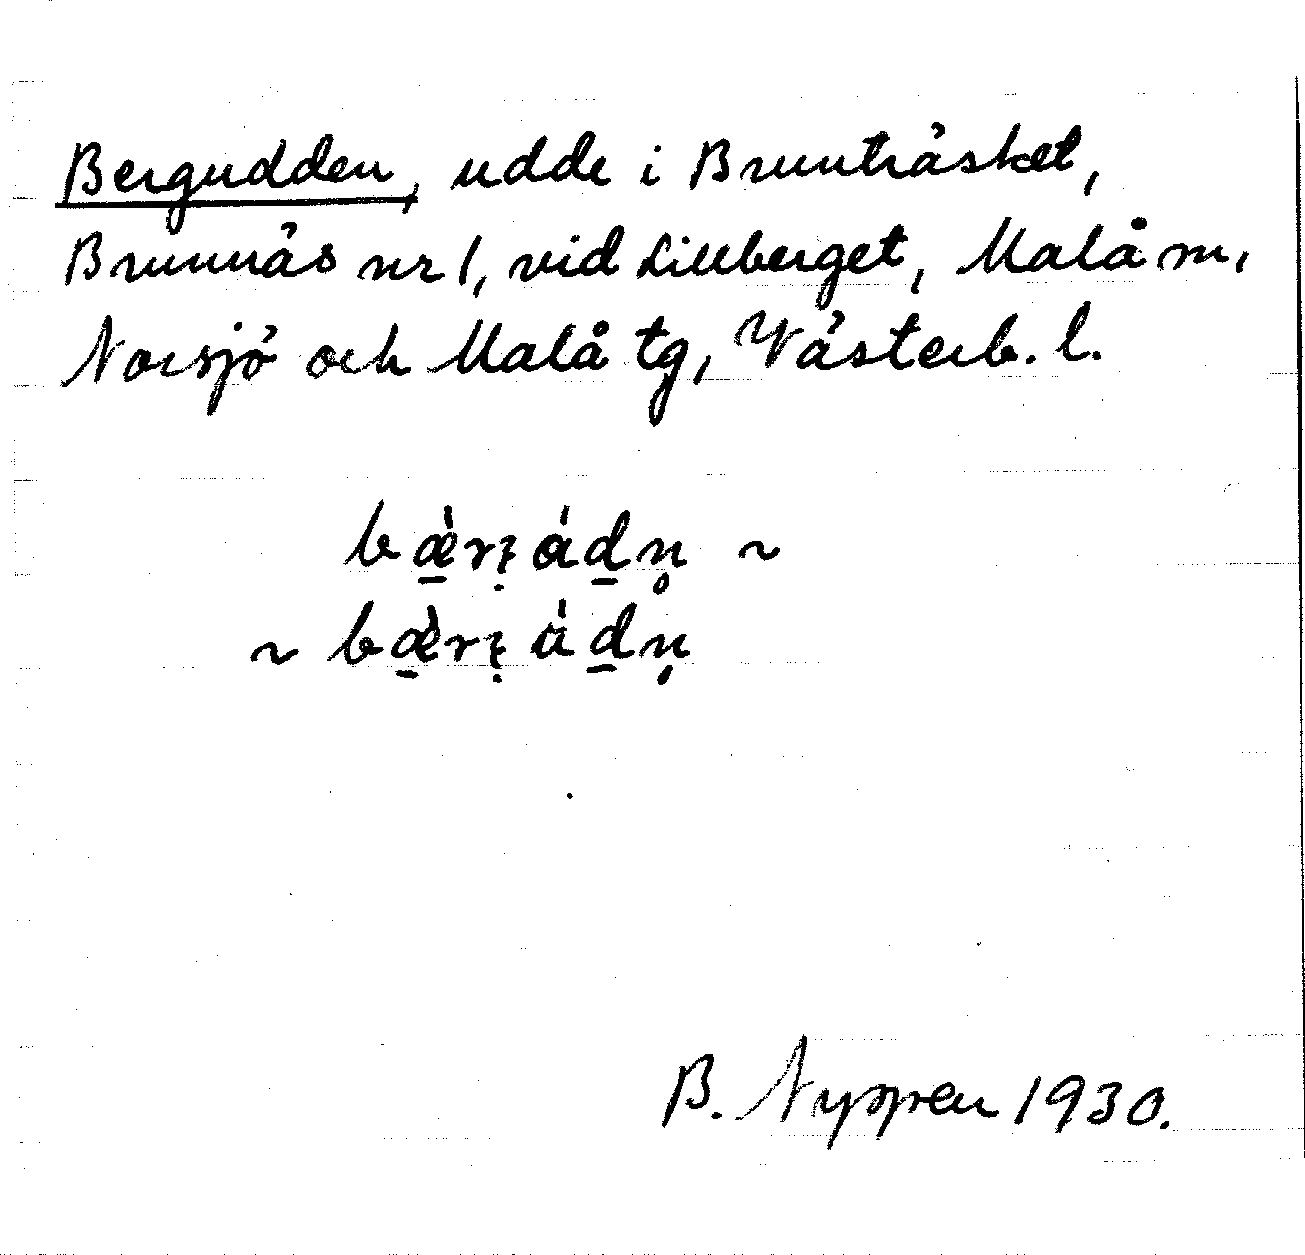 Bergudden, udde i Brunträsket,
Brunnäs nr 1, vid Lillberget, Malå sn,
Norsjö och Malå tg, Västerb. l.
~
~
B. Nyppen 1930.